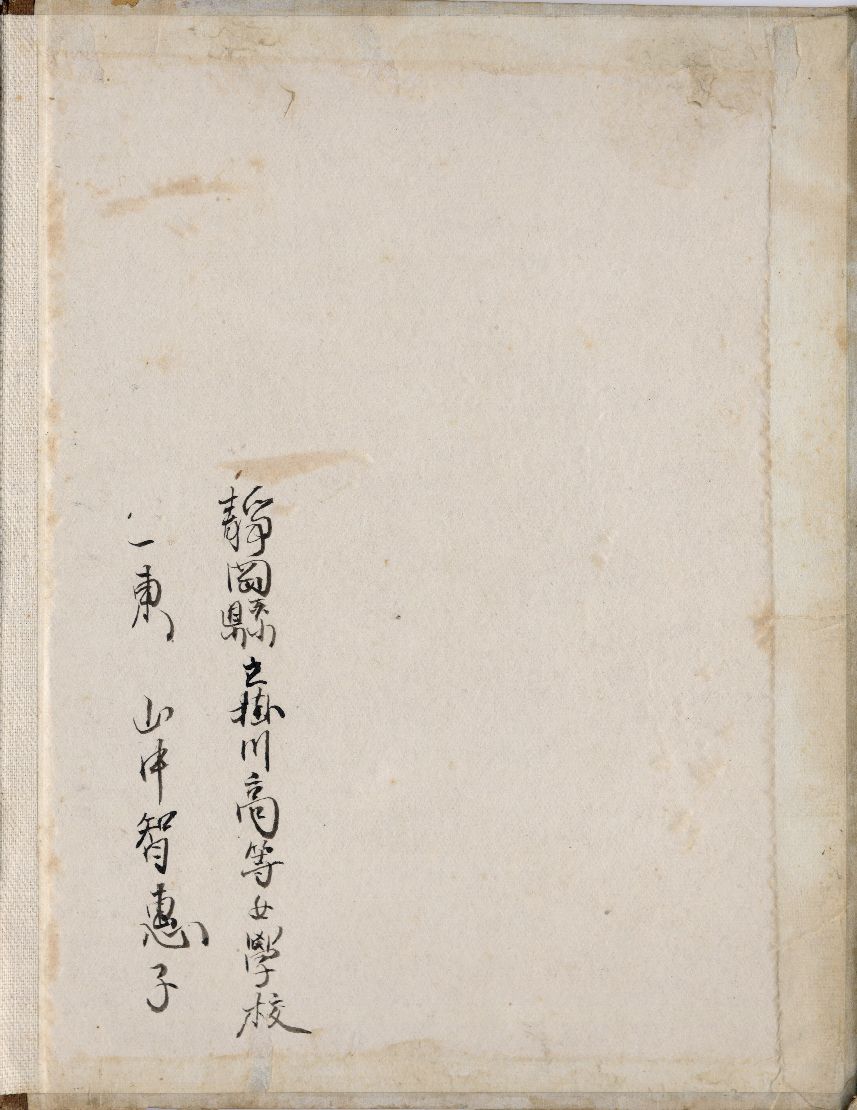 靜岡縣立掛川高等女學校
一東 山中智惠子